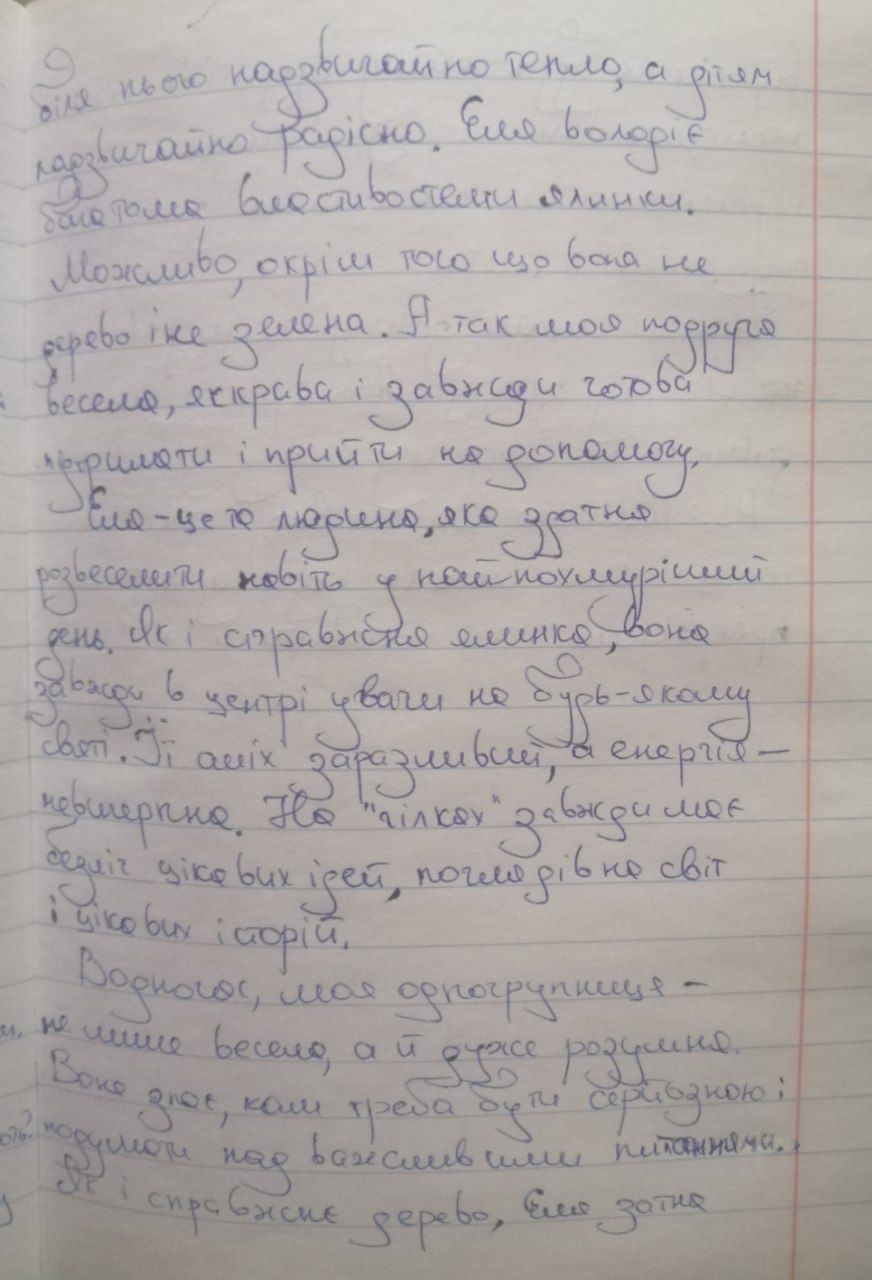 біля нього надзвичайно тепло, а дітям
надзвичайно радісно. Еля володіє
багатома властивостями ялинки.
Можливо, окрім того що вона не
дерево і не зелена. А так моя подруга
весела, яскрава і завжди готова
підтримати і прийти на допомогу.
Еля - це та людина, яка здатна
розвеселити навіть у найпохмуріший
день. Як і справжня ялинка, вона
завжди в центрі уваги на будь-якому
святі. Її сміх заразливий, а енергія —
невичерпна. На "гілках" завжди має
безліч цікавих ідей, поглядів на світ
і цікавих історій.
Водночас, моя одногрупниця -
не лише весела, а й дуже розумна.
Вона знає, коли треба бути серйозною і
подумати над важливими питаннями.
Як і справжнє дерево, Еля затна